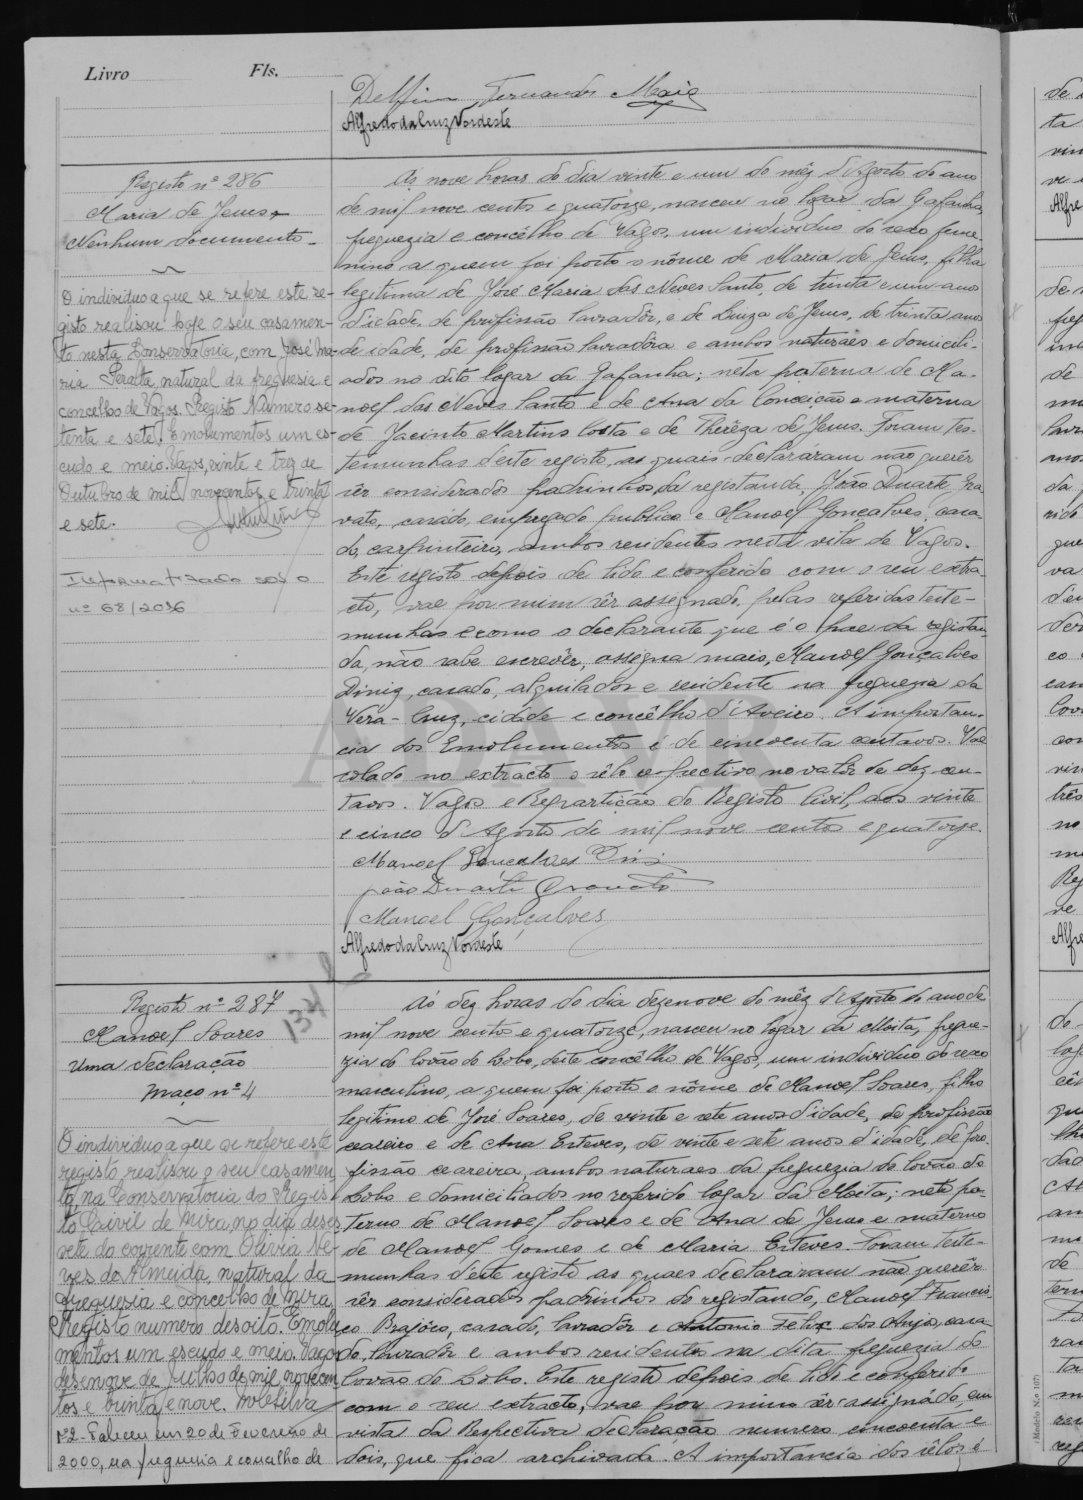 Livro Fls.
Delfim Fernandes Maia
Alfredo da Cruz Nordeste
Registo nº 286
Maria de Jesus
Nenhum documento
O individuo a que se refere este re-
gisto realisou hoje o seu casamen-
to nesta Conservatoria, com José Ma-
ria Peralta, natural da freguesia e
concelho de Vagos. Registo Numero se-
tenta e sete. Emolumentos um es-
cudo e meio. Vagos, vinte e trez de
Outubro de mil novecentos e trinta
e sete.
Informatizado sob o
nº 68/2016
As nove horas do dia vinte e um do mêz d'Agosto do ano
de mil nove centos e quatorze, nasceu no logar da Gafanha,
freguezia e concêlho de Vagos, um individuo do sexo feme-
nino a quem foi posto o nôme de Maria de Jesus, filha
legitima de José Maria das Neves Santo, de trinta e um ano
d'idade, de profissão lavradôr, e de Luiza de Jesus, de trinta anos
de idade, de profissão lavradôra e ambos naturaes e domicili-
ados no dito logar da Gafanha; neta paterna de Ma-
noel das Neves Santo e de Ana da Conceição e materna
de Jacinto Martins Costa e de Therêza de Jesus. Foram tes-
temunhas d'este registo, as quais declararam não querêr
sêr considerados padrinhos da registanda, João Duarte Cra-
vato, casado, empregado publico e Manoel Gonçalves, casa-
do, carpinteiro, ambos residentes nesta vila de Vagos.
Este registo depois de lido e conferido com o seu extra-
cto, vae por mim sêr assignado, pelas referidas teste-
munhas e como o declarante que é o pae da registan-
da, não sabe escrevêr, assigna mais, Manoel Gonçalves
Diniz, casado, alquiladôr e residente na freguezia da
Vera-Cruz, cidade e concêlho d'Aveiro. A importan-
cia dos Emolumentos é de cincoenta centavos. Vae
colado no extracto o sêlo respectivo no valôr de dez cen-
tavos. Vagos e Repartição do Registo Civil, aos vinte
e cinco d'Agosto de mil nove centos e quatorze.
Manoel Gonçalves Dinis
João Duarte Cravato
Manoel Gonçalves
Alfredo da Cruz Nordeste
ADAVR
Registo nº 287
Manoel Soares
Uma declaração
Maço nº 4
O individuo a que se refere este
registo, realisou o seu casamen
to, na Conservatoria do Regis-
to Civil de Mira, no dia deses
sete do corrente com Olivia Ne-
ves de Almeida, natural da
freguesia e concelho de Mira
Registo numero desoito. Emolu
mentos um escudo e meio. Vagos
desenove de Julho de mil novecen
tos e trinta e nove.
Nº 2 - Faleceu em 20 de Fevereiro de
2000, na freguesia e concelho de
Ás dez horas do dia dezenove do mêz d'Agosto do ano de
mil nove centos e quatorze, nasceu no logar da Moita, fregue-
zia de Covão do Lobo, deste concêlho de Vagos, um individuo do sexo
masculino, a quem foi posto o nôme de Manoel Soares, filho
legitimo de José Soares, de vinte e sete anos d'idade, de profissão
seareiro e de Ana Esteves, de vinte e sete anos d'idade, de pro-
fissão seareira, ambos naturaes da freguezia do Covão do
Lobo e domiciliados no referido logar da Moita; neto pa-
terno de Manoel Soares e de Ana de Jesus e materno
de Manoel Gomes e de Maria Esteves. Foram teste-
munhas d'este registo as quaes declararam não querêr
sêr considerados padrinhos do registando, Manoel Francis-
co casado, lavradôr e Antonio Felix dos Anjos, casa-
do, lavradôr e ambos residentes na dita freguezia do
Covão do Lobo. Este registo depois de lido e conferido
com o seu extracto, vae por mim sêr assignádo, em
vista da respectiva declaração numero cincoenta e
dois, que fica archivada. A importancia dos sêlos é